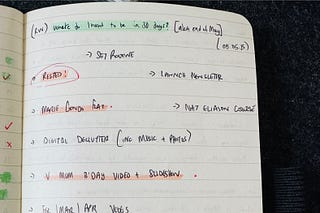 where do I want to be in 30 days? [aka end of May]
[03.05.15]
→ SET ROUTINE
→ RESTED!
→ LAUNCH NEWSLETTER
→ MARIE KONDO FLAT.
→ NAT ELIASON COURSE
→ DIGITAL DECLUTTER (INC MUSIC + PHOTOS)
→ MUM B'DAY VIDEO + SLIDESHOW.
→ FEB | MAR | APR VLOGS